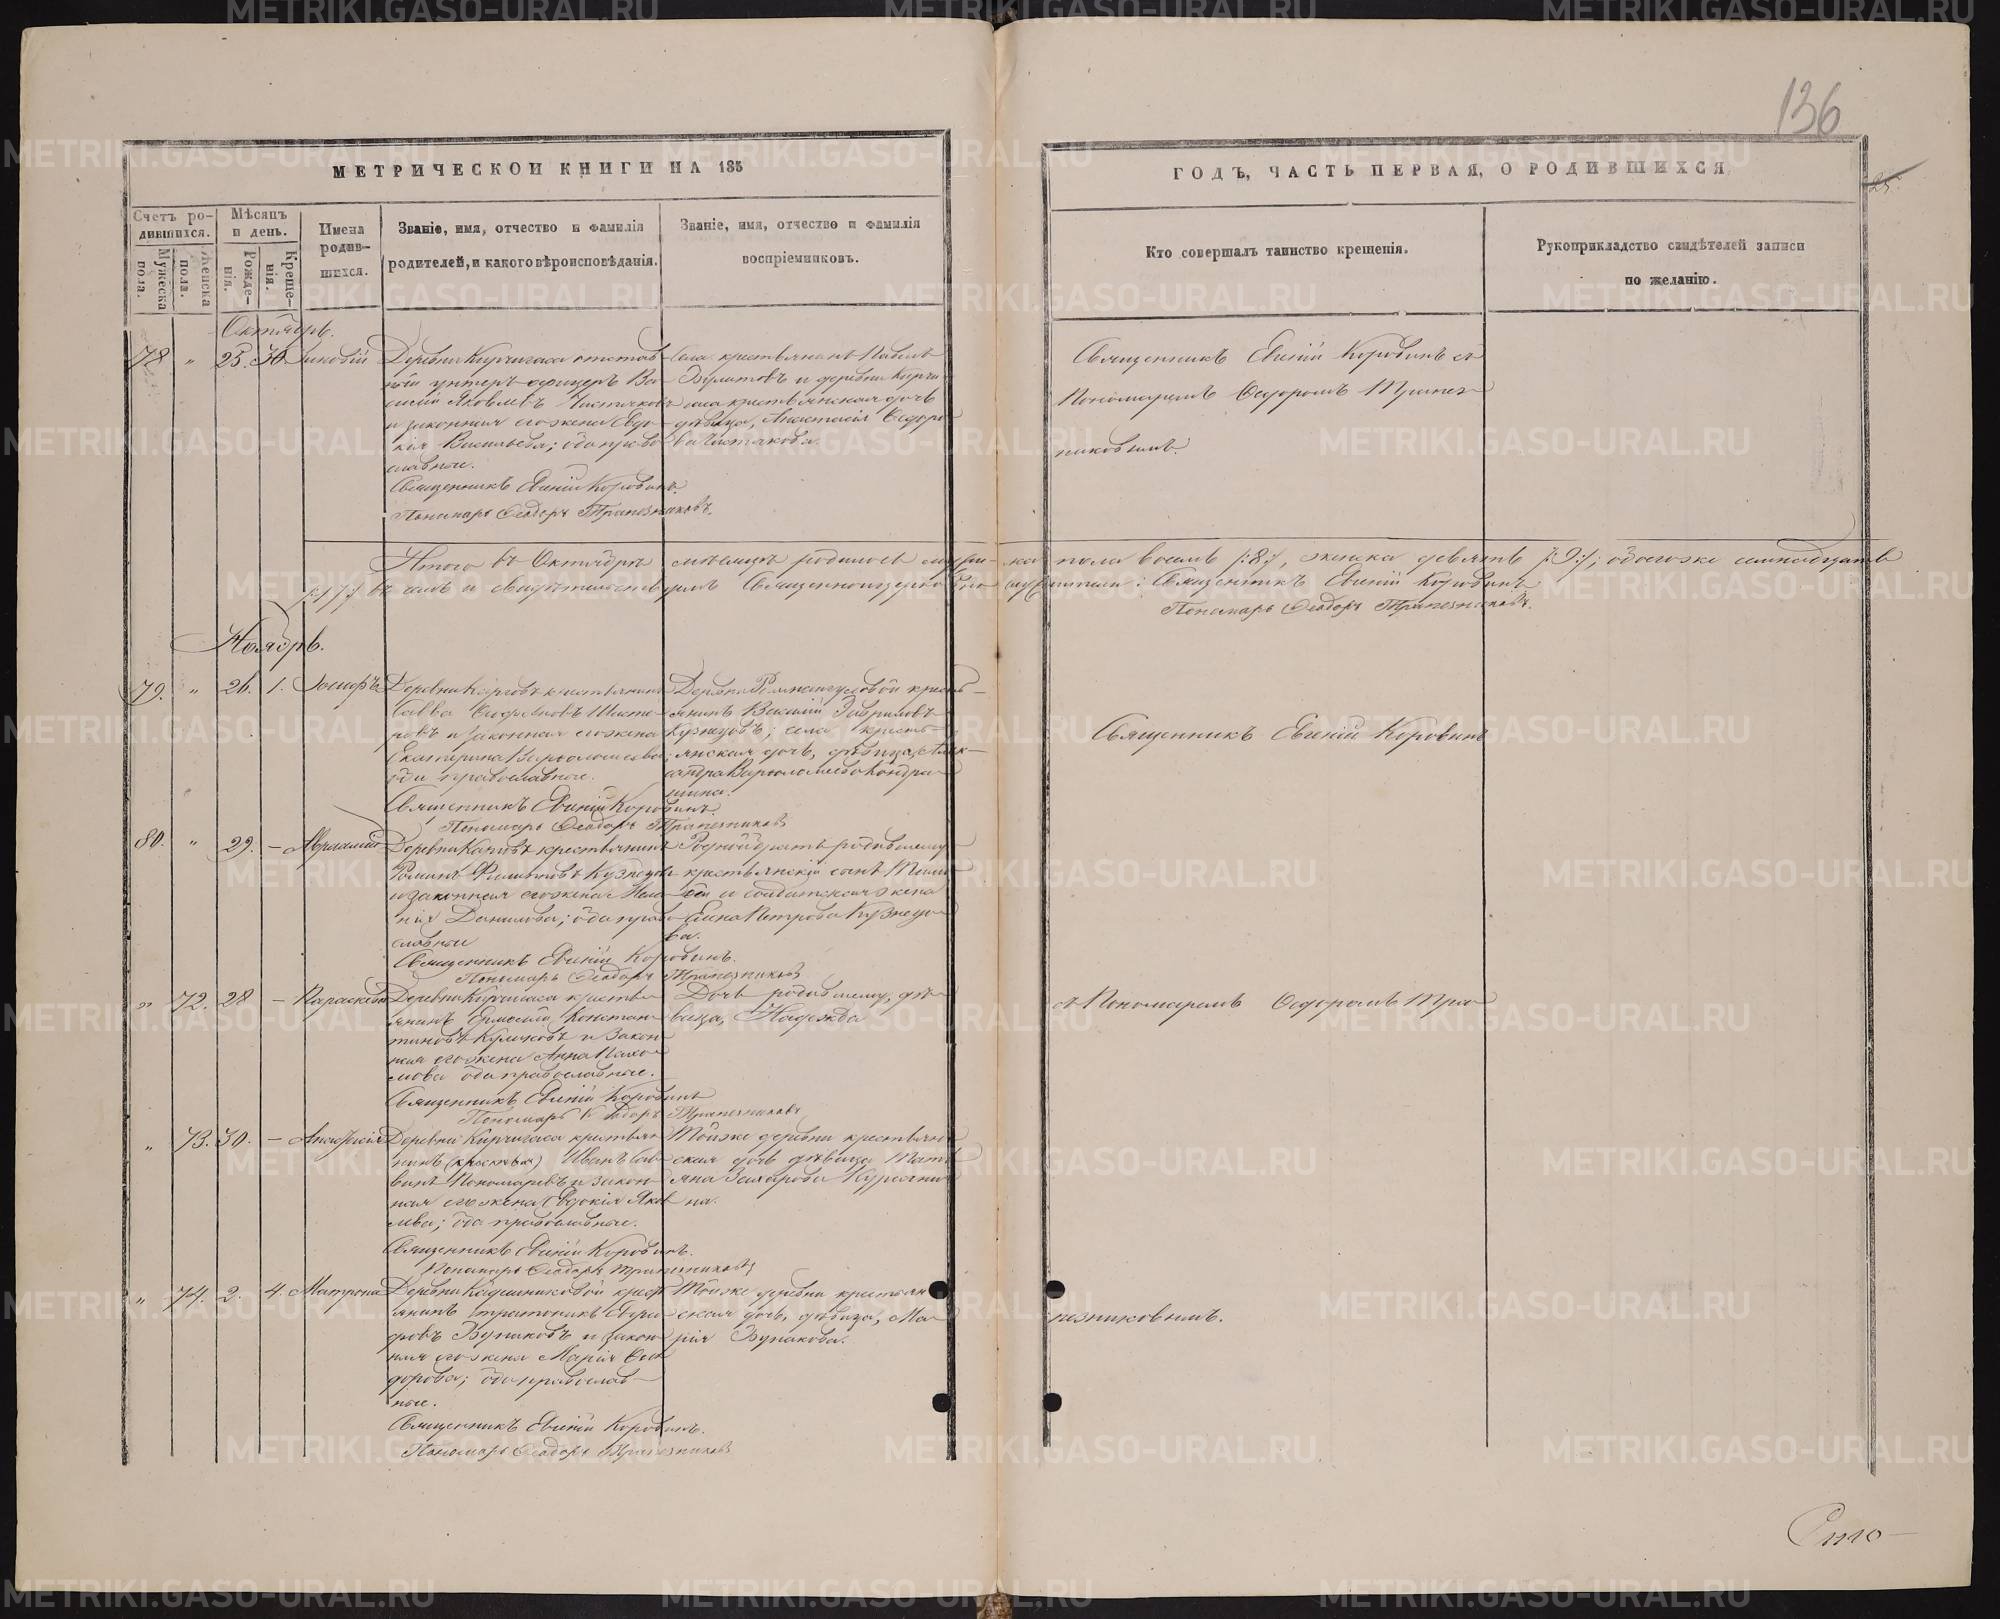 136
МЕТРИЧЕСКОИ КНИГИ НА 185
ГОДЪ, ЧАСТЬ ПЕРВАЯ, О РОДИВШИХСЯ
25.
Счетъ ро-
дившихся.
Мужеска
пола.
Женска
пола.
Мѣсяцъ
и день.
Рожде-
нія.
Креще-
нія.
Имена
родив-
шихся.
Званіе, имя, отчество и фамилія
родителей, и какого вѣроисповѣданія.
Званіе, имя, отчество и фамилія
воспріемниковъ.
Кто совершалъ таинство крещенія.
Рукоприкладство свидѣтелей записи
по желанію.
Октябрь.
78 " 25. 30.
Деревни Кирчигаса отстав-
ной унтеръ офицеръ Ва-
силій Яковлевъ Чистяковъ
и законная его жена Евдо-
кія Васильева; оба право-
славные.
Священникъ Евгеній Коровинъ.
Пономарь Ѳеодоръ Трапезниковъ.
Села крестьянинъ Павелъ
и деревни Кирчи-
гаса крестьянская дочь
дѣвица, Анастасія Ѳедоро-
ва Чистякова.
Священникъ Евгеній Коровинъ съ
Пономаремъ Ѳедоромъ Трапез-
никовымъ.
Итого въ Октябрѣ мѣсяцѣ родилось мужес-ка пола восемь /:8:/, женска девять /:9:/; обоегоже семнадцать
/:17:/ въ чемъ и свидѣтельствуемъ Священникъ Евгеній Коровинъ
Пономарь Ѳеодоръ Трапезниковъ.
Ноябрь.
79. " 26. 1. Іосифъ
Деревни крестьянинъ
Савва
и законная его жена
Екатерина Варфоломеева;
оба православные.
Священникъ Евгеній Коровинъ.
Пономарь Ѳеодоръ Трапезниковъ
Деревни кресть-
янинъ Василій Гавриловъ
Кузнецовъ; села кресть-
янская дочь, дѣвица, Алек-
сандра Варфоломеева Кондра-
шина.
Священникъ Евгеній Коровинъ
80. " 29. - Авраамій
Деревни крестьянинъ
Романъ Филиповъ Кузнецовъ
и законная его жена Мела-
нія Данилова; оба право-
славные
Священникъ Евгеній Коровинъ.
Пономарь Ѳеодоръ Трапезниковъ
Родной братъ родившему
крестьянскій сынъ
и солдатская жена
Елена Петрова Кузнецо-
ва.
" 72. 28 - Параскева
Деревни Кирчигаса кресть-
янинъ Ермолай Констан-
тиновъ Куличковъ и закон-
ная его жена Анна Пахо-
мова оба православные.
Священникъ Евгеній Коровинъ
Пономарь Ѳеодоръ Трапезниковъ
Дочь родившему, дѣ-
вица, Надежда
съ Пономаремъ Ѳедоромъ Тра-
" 73. 30. - Анастасія
Деревни Кирчигаса крестья-
нинъ Иванъ Сав-
винъ Пономаревъ и закон-
ная его жена Евдокія Яков-
лева; оба православные.
Священникъ Евгеній Коровинъ.
Пономарь Ѳеодоръ Трапезниковъ
Тойже деревни крестьян-
ская дочь дѣвица Тать-
яна Захарова
на.
" 74. 2. 4. Матрона
Деревни крест-
янинъ
ровъ и закон-
ная его жена Марія Ѳео-
дорова; оба православ-
ные.
Священникъ Евгеній Коровинъ.
Пономарь Ѳеодоръ Трапезниковъ
Тойже деревни крестьян-
ская дочь, дѣвица, Ма-
рія
пезниковымъ.
METRIKI.GASO-URAL.RU